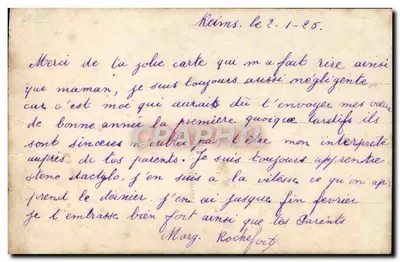 Reims, le 2-1-25.
Merci de ta jolie carte qui m'a fait rire ainsi
que maman, je suis toujours aussi négligente
car c'est moi qui aurait dû t'envoyer mes vœux
de bonne année la première quoique tardifs ils
sont sincères n'oublie pas d'être mon interprète
auprès de tes parents. Je suis toujours apprentie
steno dactylo. j'en suis a la vitesse ce qu'on ap-
prend le dernier. j'en ai jusque fin fevrier
je t'embrasse bien fort ainsi que tes Parents
Marg. Rochefort